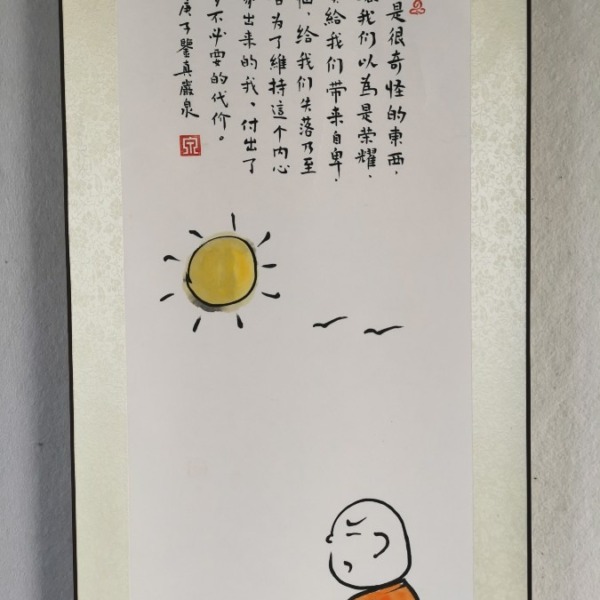 是很奇怪的東西，
我们以為是荣耀，
給我们带来自卑，
给我们失落乃至
為了維持這个内心
出来的我、付出了
不必要的代价。
庚子
真嚴泉